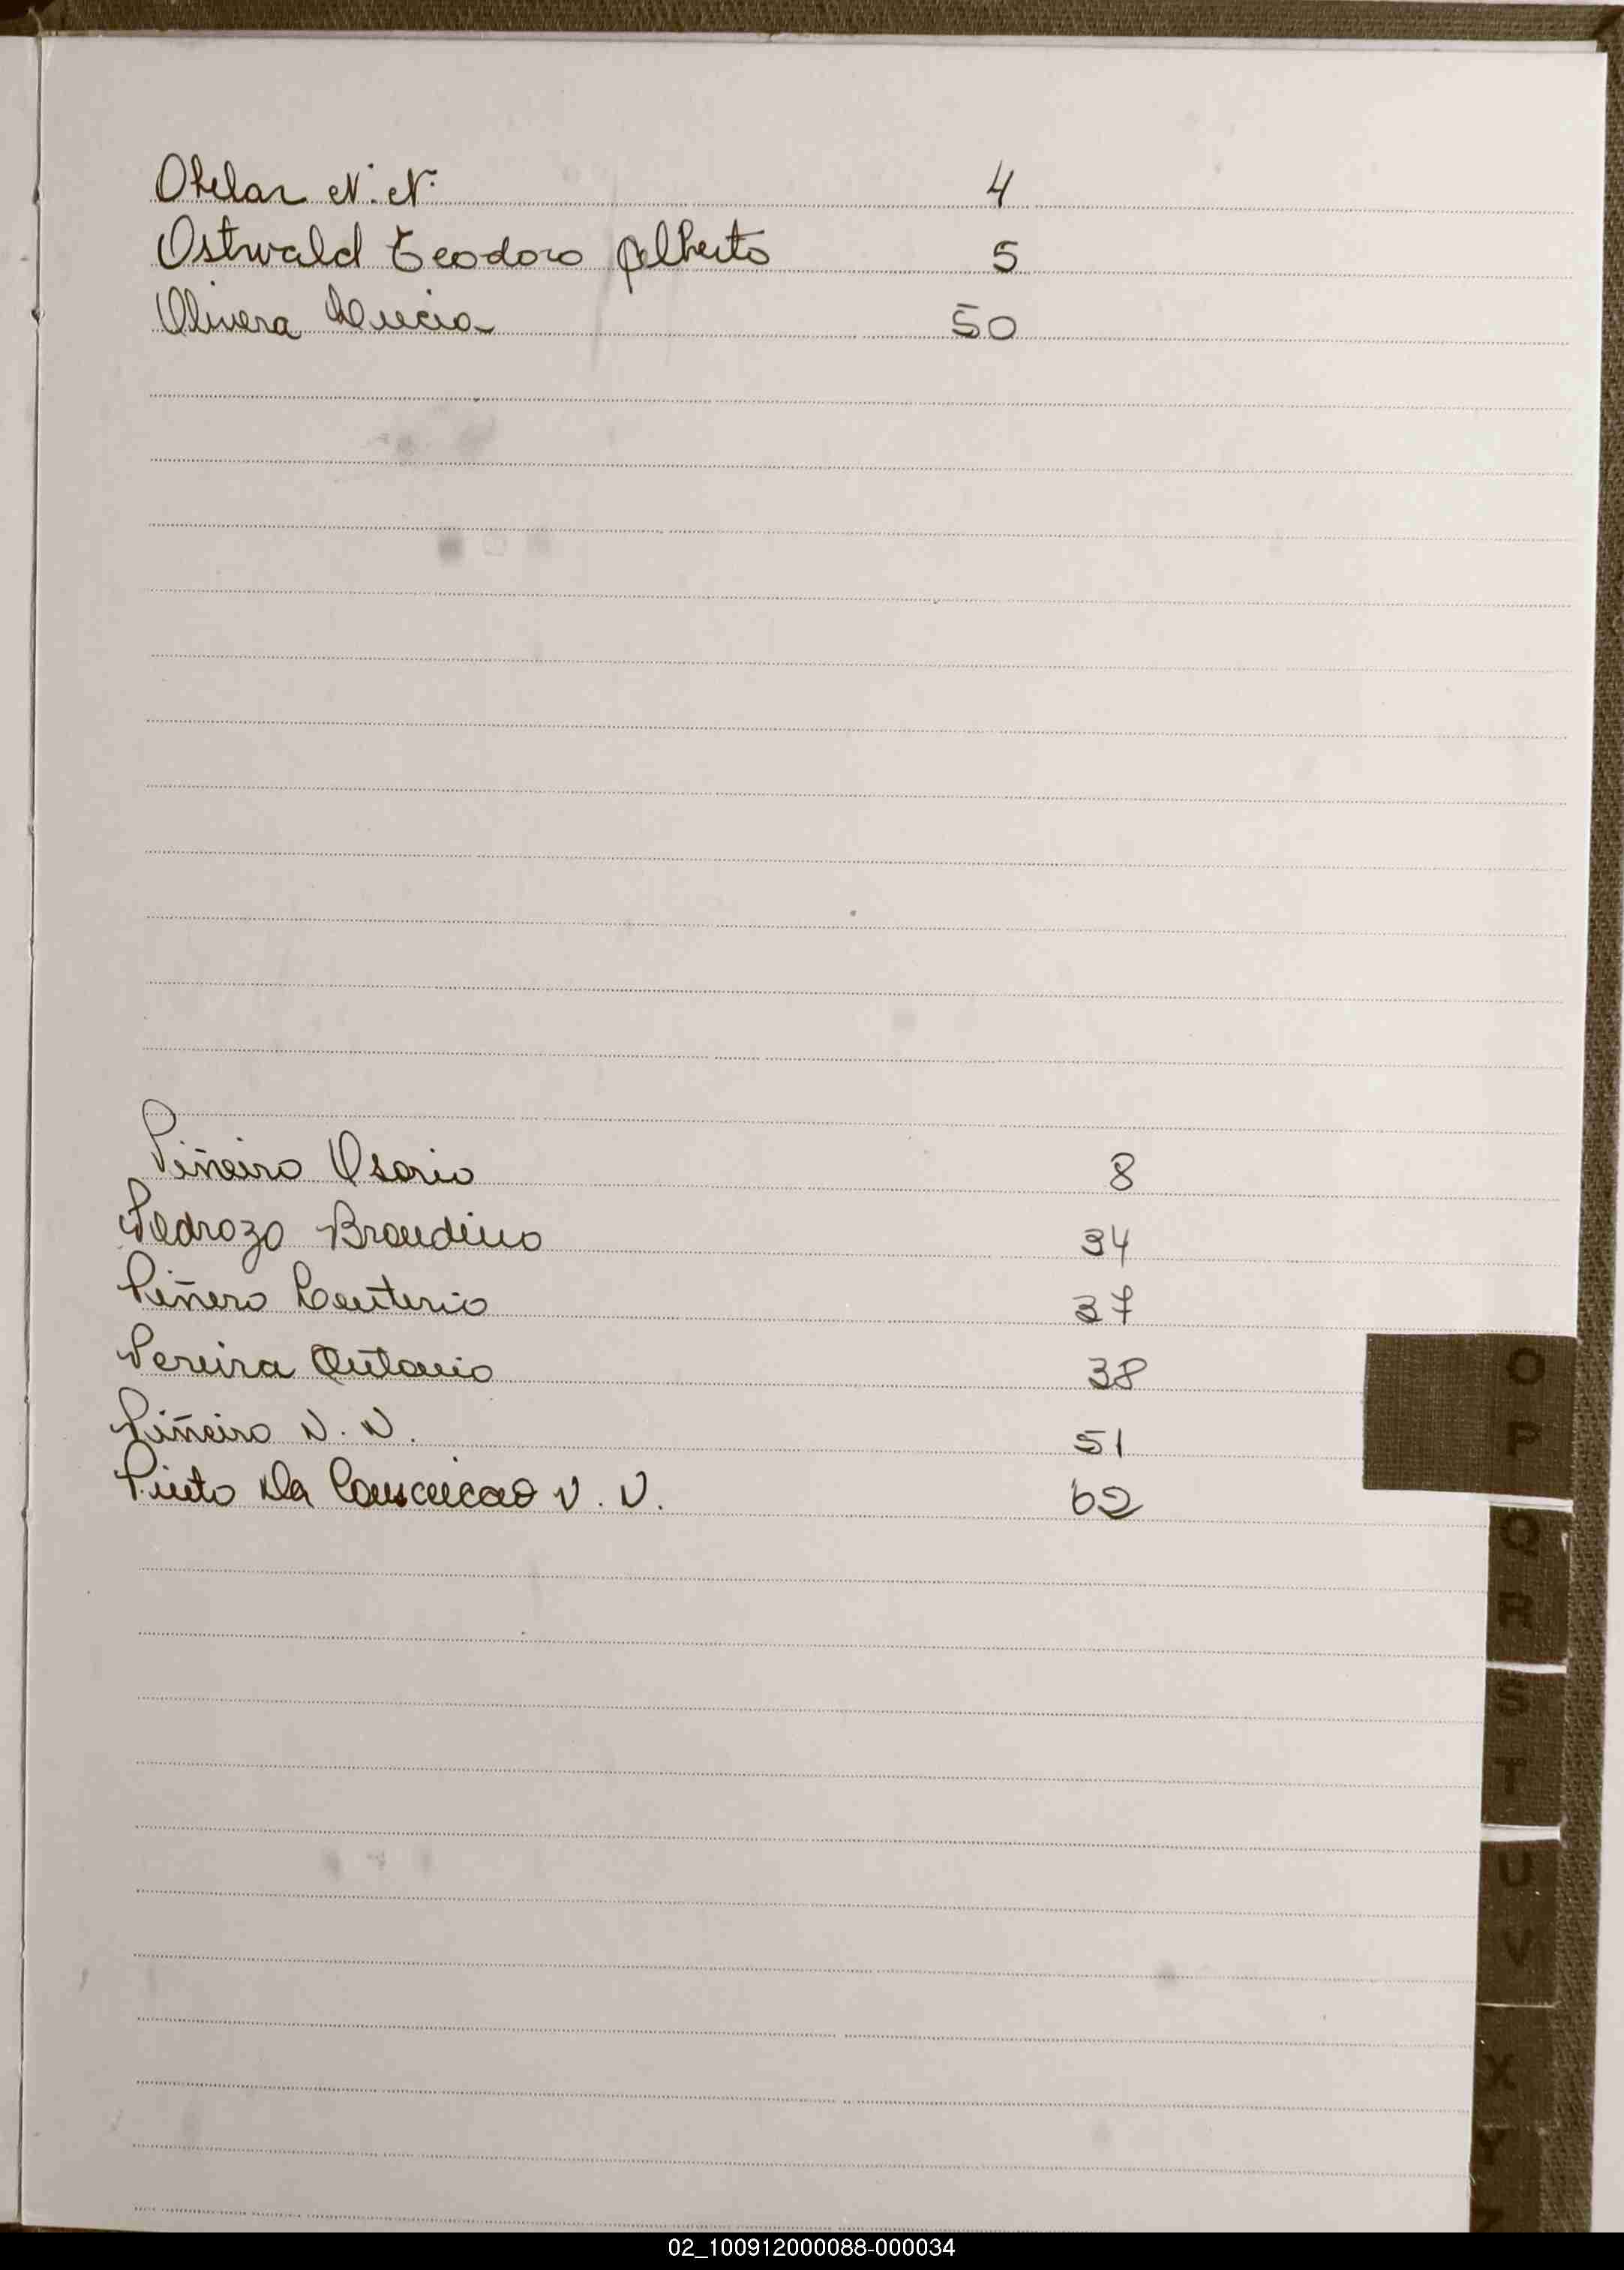 Obelar N. N. 4
Ostwald Teodoro Alberto 5
Olivera Lucia 50
Piñeiro Osorio 8
Pedrozo Brandino 34
Piñero Leuterio 37
Pereira Antonio 38
Piñeiro N. N. 51
Pinto Da N. N. 62
O
P
Q
R
S
T
U
V
X
Y
Z
02_100912000088-000034